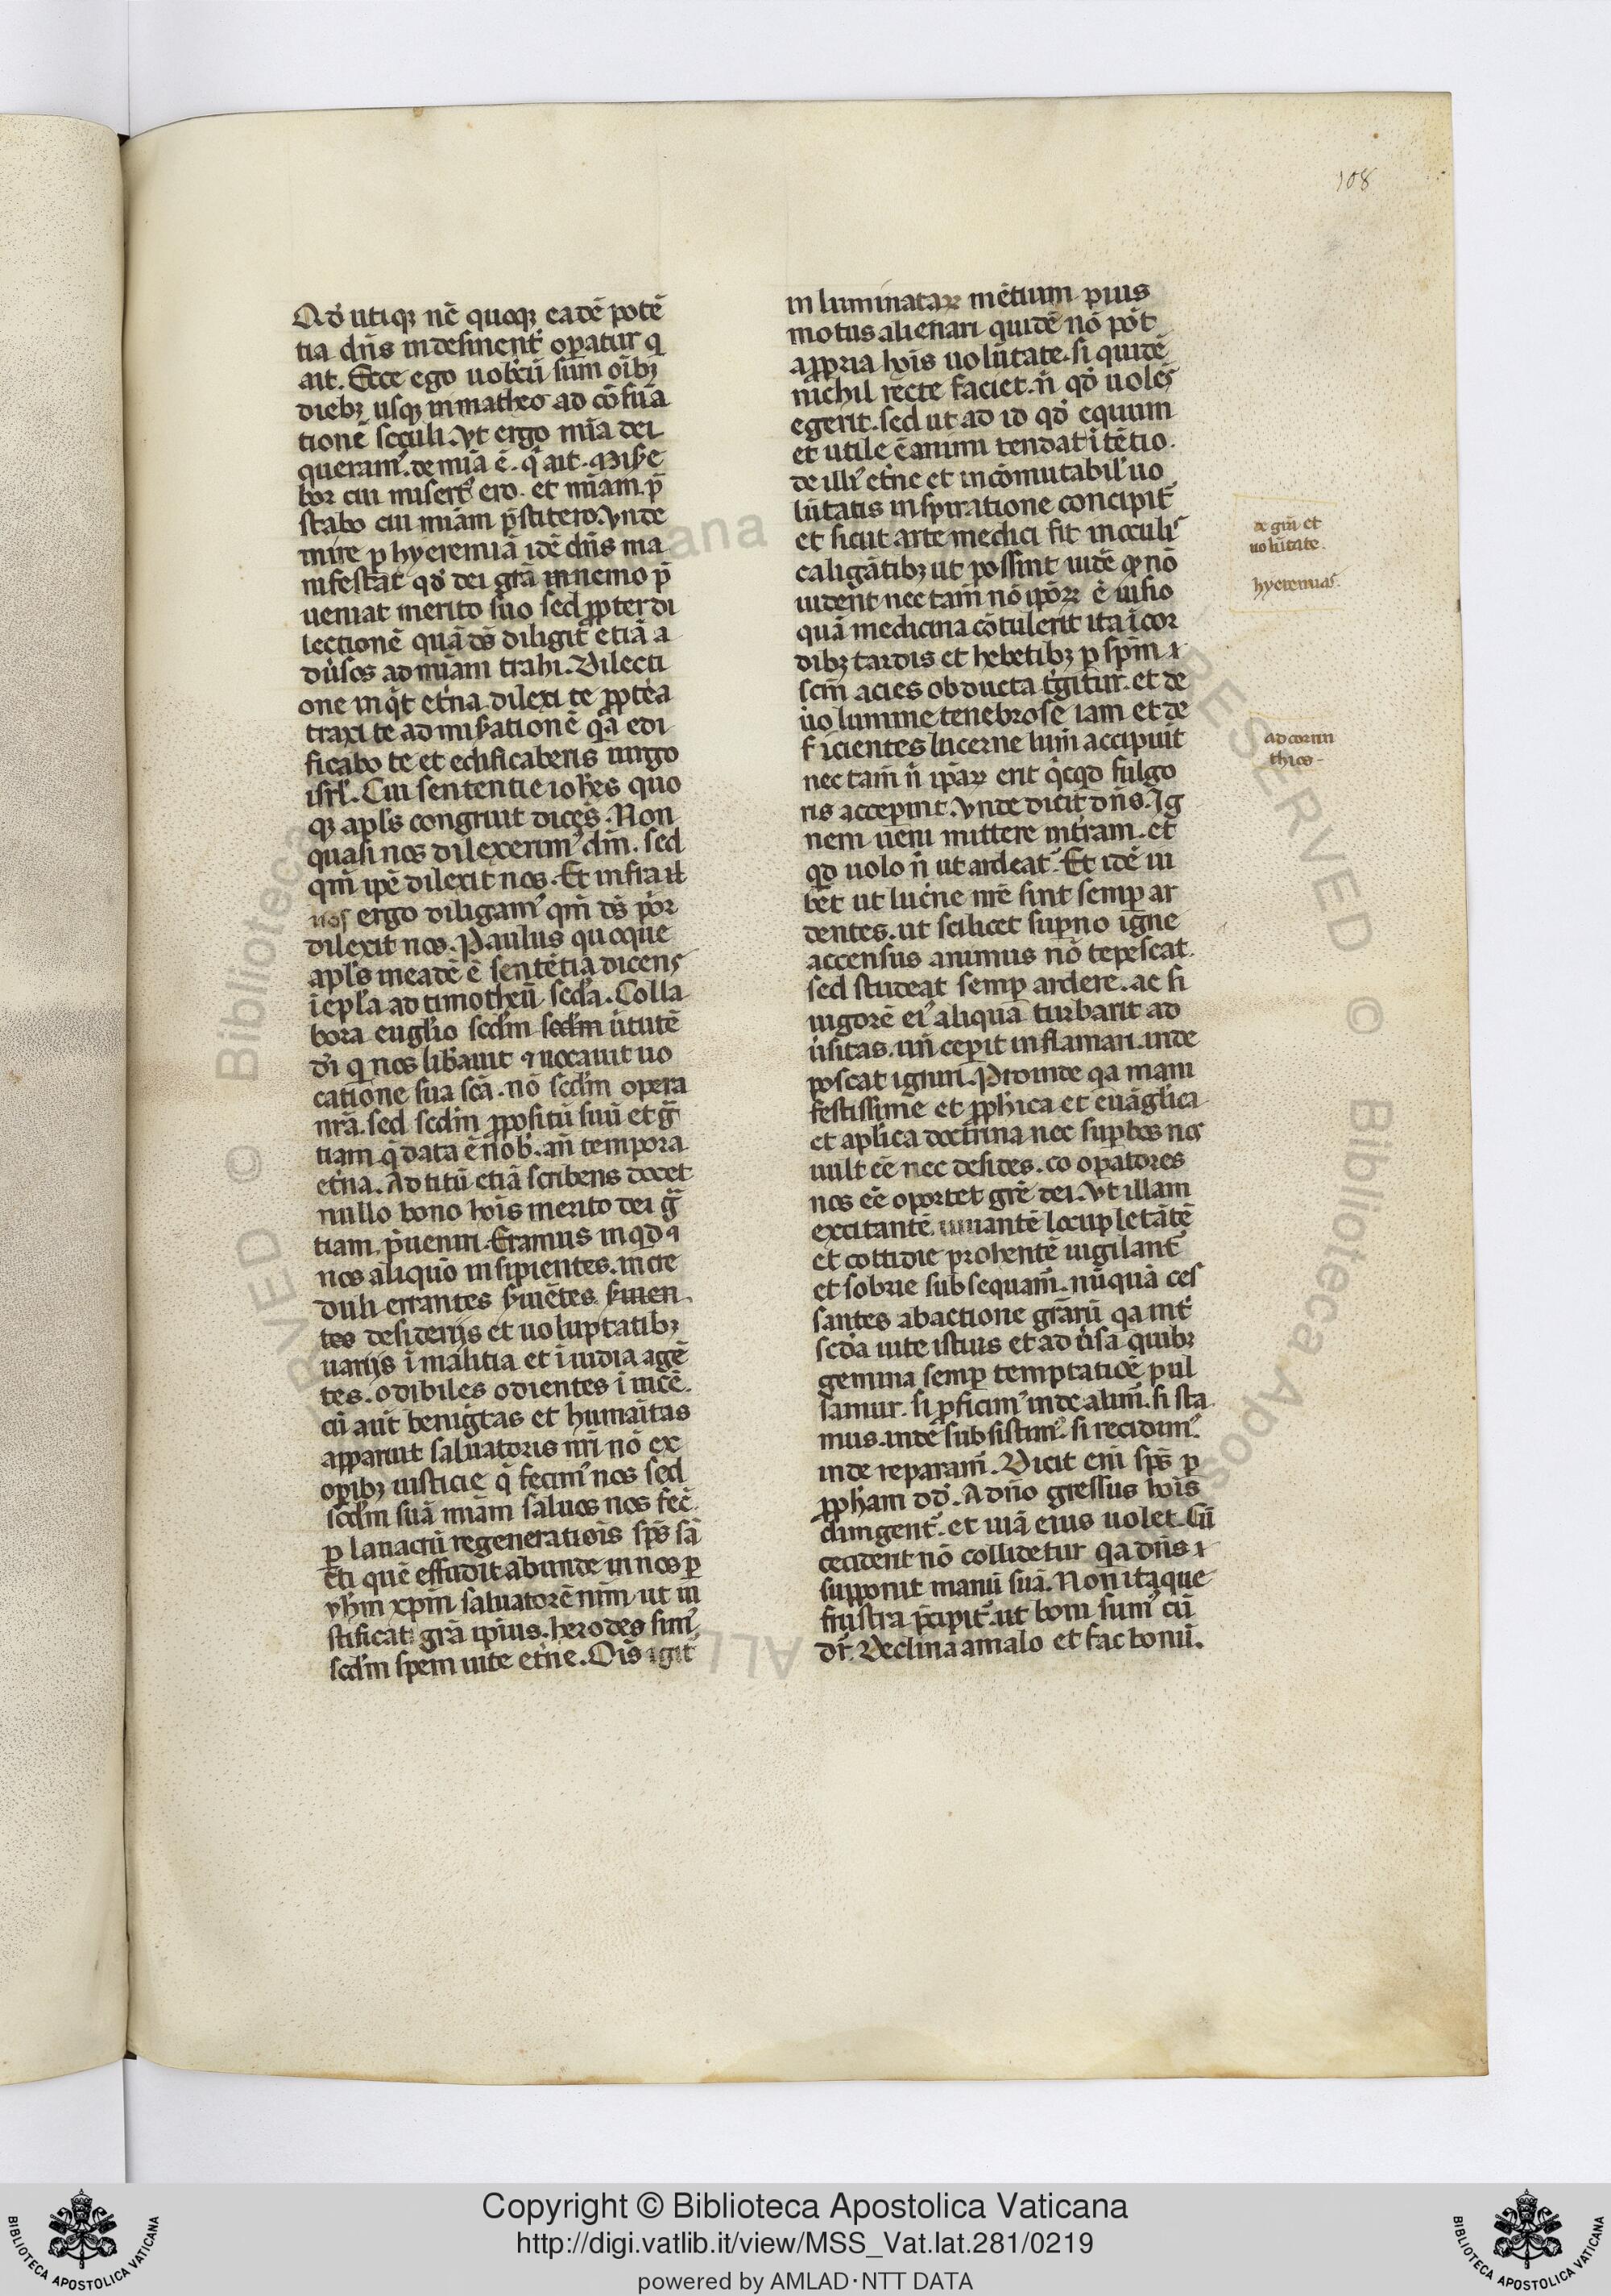 108
Qd' utiqꝫ nc̄ quoqꝫ eadē potē
tia dn̄s indesinent' oꝑatur q
ait. Ecce ego uobcū sum oībꝫ
diebꝫ usqꝫ in matheo ad cōsūa
tionē sc̄culi. Vt ergo mīa dei
queram'. de mīa ē. q' ait. Mise
bor cui misert' ero. et mīam. p̄
stabo cui mīam p̄stitero. Vnde
mire ꝑ hyeremiā idē dn̄s ma
nifestat qd' dei grā in nemo p̄
ueniat merito suo sed ꝓpter di
lectionē quā dс̄ diligit etiā a
du'sos ad mīam trahi. Dilecti
one inq't et'na dilexi te ꝓpt'ea
traxi te ad mis'ationē q'a edi
ficabo te et edificaberis uirgo
isrl'. Cui sententie ioh̄es quo
qꝫ apl's congruit dicēs. Non
quasi nos dilexerim' dm̄. sed
qm̄ ip̄e dilexit nos. Et infra il
nos ergo diligam' qm̄ ds̄ p'or
dilexit nos. Paulus quoque
apl's in eadē ē sentētia dicens
ī epl'a ad timotheū scd'a. Colla
bora eugl'io scd'm scd'm u'tutē
d'i q nos lib'auit ⁊ uocauit uo
catione sua scā. nō scd'm opera
nr̄a. sed scd'm ꝓpositū suū et gr̄
tiam q' data ē nob'. an̄ tempora
et'na. Ad titū etiā scribens docet
nullo bono hoīs merito dei gr̄
tiam p̄ueniri. Eramus inqd ⁊
nos aliqn̄o insipientes. incre
duli errantes s'uiētes. s'uien
tes desiderijs et uoluptatibꝫ
uarijs ī malitia et ī uidia agē
tes. odibiles odientes ī uicē.
cū aut̄ benigtas et humaītas
apparuit saluatoris nr̄i nō ex
oꝑibꝫ iusticie q' fecim' nos sed
scd'm suā mīam saluos nos fec̄.
ꝑ lauacrū regeneratiois sp̄s sā
cti quē effudit abunde in nos ꝑ
yhm xp̄m saluatorē nr̄m ut iu
stificati grā ipius. herodes sim'
scd'm spem uite et'ne. Oīs igit'
in luminataꝝ mētium. pius
motus alienari quidē nō pōt
a ꝓpria hoīs uolūtate. si quidē
nichil recte faciet. n̄ qd' uolēs
egerit. sed ut ad id qd' equum
et utile ē animi tendat ītētio.
de illi' et'ne et incōmutabil' uo
lūtatis inspiratione concipit'
et sicut arte medici fit in oculis
caligātibꝫ ut possint uidē qꝫ nō
uident nec tam̄ nō ipōꝝ ē uisio
quā medicina cōtulerit ita ī cor
dibꝫ tardis et hebetibꝫ ꝑ sp̄m ⁊
scm̄ acies obducta t'gitur. et de
uo lumine tenebrose iam et de
ficientes lucerne lum̄ accipiūt
nec tam̄ n̄ ip̄aꝝ erit q'cqd fulgo
ris acceperint. Vnde dicit dn̄s. Ig
nem ueni mittere in t'ram. et
qd uolo n̄ ut ardeat. Et idē iu
bet ut luc'ne nr̄e sint semꝑ ar
dentes. ut scilicet suꝑno igne
accensus animus nō tepescat.
sed studeat semꝑ ardere. ac si
uigorē ei' aliquā turbarit ad
u'sitas. un̄ cepit inflamari. inde
poscat igniri. Proinde qa mani
festissime et ꝓph'ica et euāgl'ica
et apl'ica doctrina nec suꝑbos nos
uult eē nec desides. co oꝑatores
nos eē oportet grē dei. Vt illam
excitantē. iuuantē locupletātē
et cottidie prohentē uigilant'
et sobrie subsequam̄. nūquā ces
santes ab actione grārū qa int'
scd'a uite istius et ad u'sa quibꝫ
gemina semꝑ temptatiōē pul
samur. si ꝓficim' inde alim̄. si sta
mus. inde subsistim'. si recidim'.
inde reparam̄. Dicit eni sp̄s ꝑ
ꝓph'am dd'. A dn̄o gressus hoīs
dirigent'. et uiā eius uolet. Cū
ceciderit nō collidetur qa dn̄s ⁊
supponit manū suā. Non itaque
frustra p̄cipit'. ut boni sum' cū
dr̄. Declina a malo et fac bonū.
de gr̄a et
uolūtate.
hyeremias.
ad corin
thios-
Copyright © Biblioteca Apostolica Vaticana
http://digi.vatlib.it/view/MSS_Vat.lat.281/0219
powered by AMLAD·NTT DATA
BIBLIOTECA APOSTOLICA VATICANA
BIBLIOTECA APOSTOLICA VATICANA